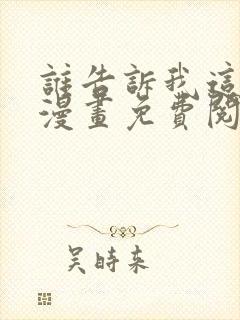 誰告訴我這
漫畫免費閱
吳時來